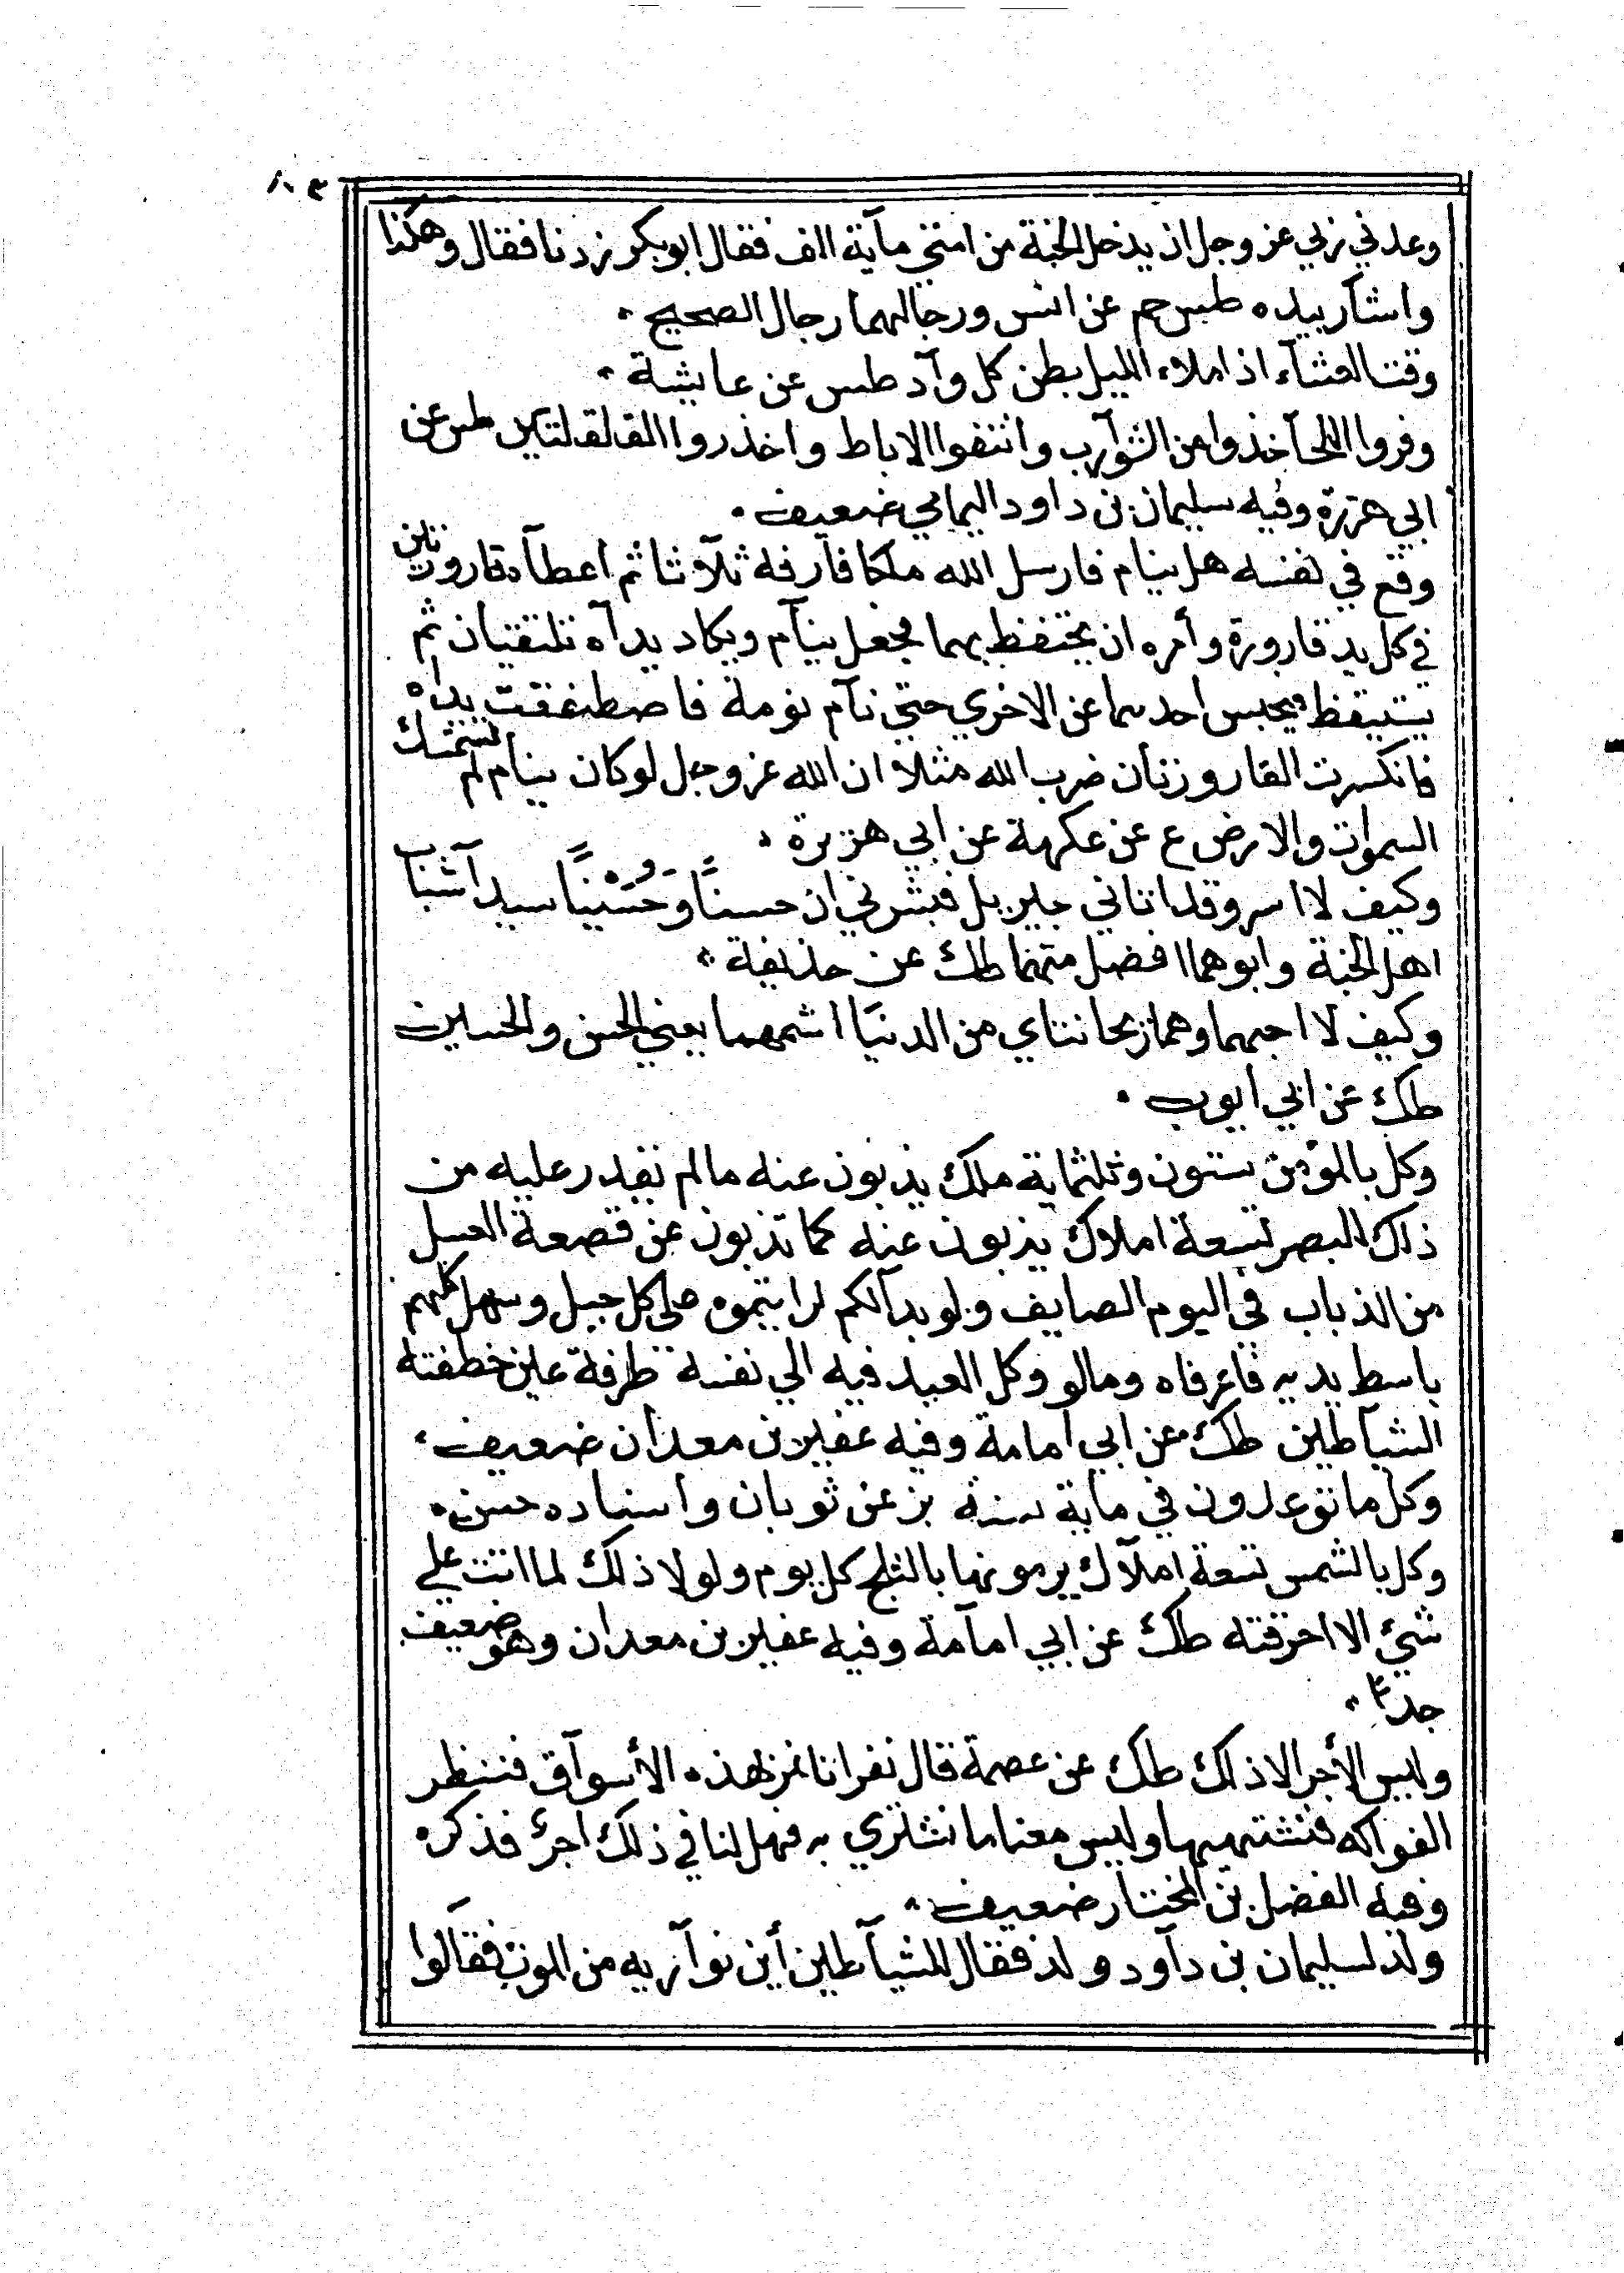 ١٠٣
وعدني ربي عز وجل ان يدخل الجنة من امتي مآية الف فقال ابو بكر زدنا فقال وهكذا
واشآر بيده طس حم عن انس ورجالهما رجال الصحيح
وقت العشاء اذا ملاء الليل بطن كل وآد طس عن عايشة
وفروا اللحا خذوا من الشوآرب وانتفوا الاباط واخذروا الفلقلتين طس عن
ابي هريرة وفيه سليمان بن داود اليمامي ضعيف
وقع في نفسه هل ينام فارسل الله ملكا فآرقه ثلآثا ثم اعطآه قارورتين
في كل يد قارورة وأمره ان يحتفظ بهما فجعل ينآم ويكاد يدآه تلتقيان ثم
يستيقظ فيحبس احدهما عن الاخري حتي نآم نومة فاصطفقت يدآه
فانكسرت القارورتان ضرب الله مثلا ان الله عز وجل لو كان ينام لم تستمسك
السموات والارض ع عن عكرمة عن ابي هريرة
وكيف لا اسر وقد اتاني جبريل فبشرني ان حسنًا وحُسْينًا سيدآ شباب
اهل الجنة وابوهما افضل منهما طك عن حذيفة
وكيف لا احبهما وهما ريحانتاي من الدنيا اشمهما يعني الحسن والحسين
طك عن ابي ايوب
وكل بالمؤمن ستون وثلثماية ملك يذبون عنه ما لم نقدر عليه من
ذلك البصر تسعة املاك يذبون عنه كما تذبون عن قصعة العسل
من الذباب في اليوم الصايف ولو بدآ لكم لرايتموه علي كل جبل وسهل كلهم
باسط يديه فاغرفاه ومالو وكل العبد فيه الي نفسه طرفة عين خطفته
الشيآطين طك عن ابي امامة وفيه عفير بن معدان ضعيف
وكل ما توعدون في ماية سنة بز عن ثوبان واسناده حسن
وكل بالشمس تسعة املآك يرمونها بالثلج كل يوم ولولا ذلك لما اتت علي
شيئ الا احرقته طك عن ابي امآمة وفيه عفير بن معدان وهو ضعيف
جدًا
وليس الأجر الا ذلك طك عن عصمة قال نفر انا نمر لهذه الأسوآق فننظر
الفواكه فنشتهيها وليس معنا ما نشتري به فهل لنا في ذلك اجر فذكره
وفيه الفضل بن المختار ضعيف
ولد لسليمان بن دآود ولد فقال للشيآطين أين نوآريه من الموت فقآلوا